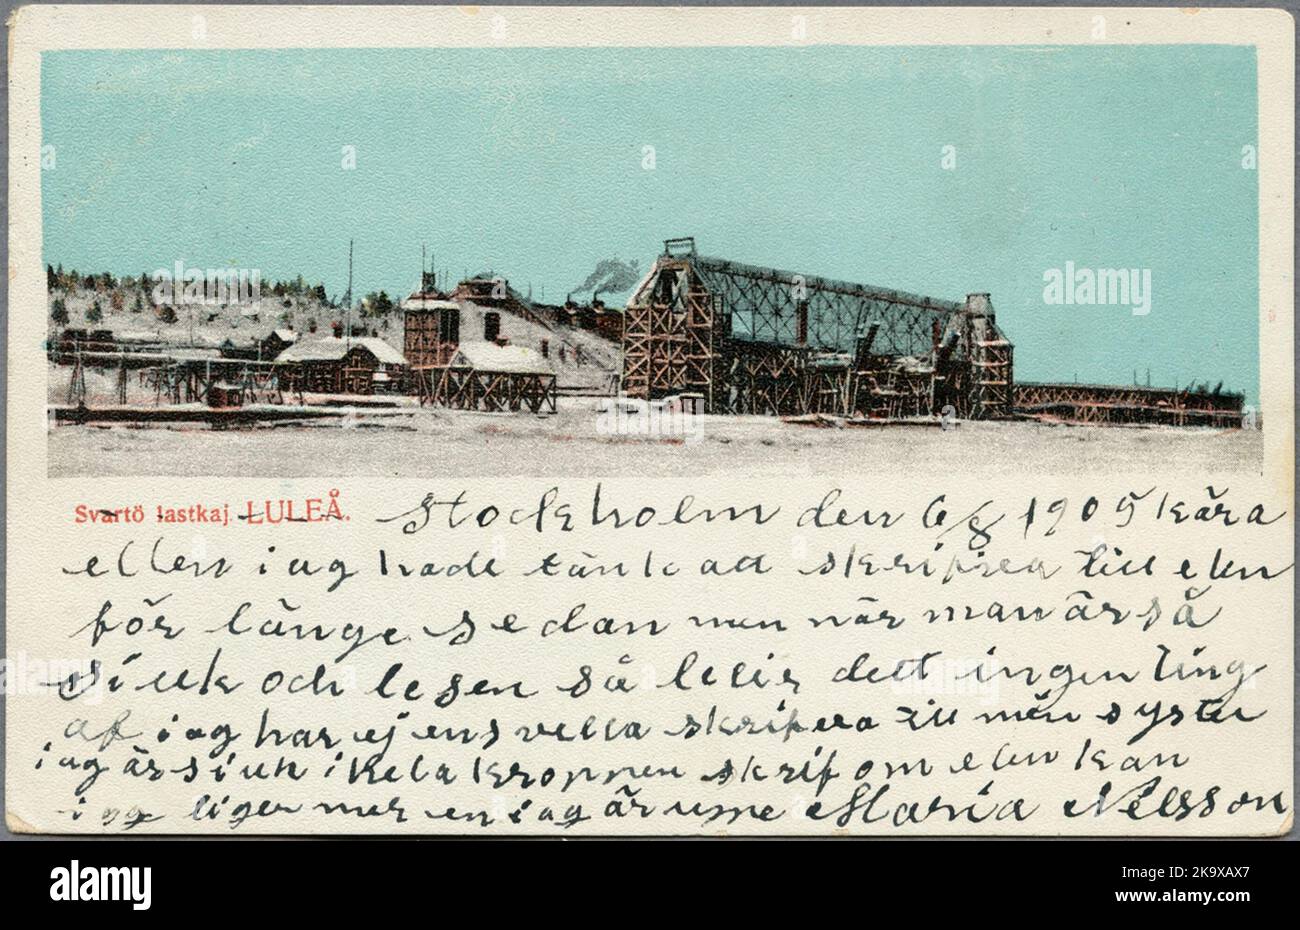 Svartö lastkaj. LULEÅ.
Stockholm den 6/8 1905 kära
ellen iag hade tänk att skripea till elen
för länge sedan men när man är så
siuk och lesen så bleir det ingen ting
af iag har ej ens vella skripea till min syster
iag är siuk i hela kroppen skrif om elen kan
iag liger mer en iag är uppe Maria Nilsson
a a a a a a
alamy
alamy
Image ID: 2K9XAX7
www.alamy.com